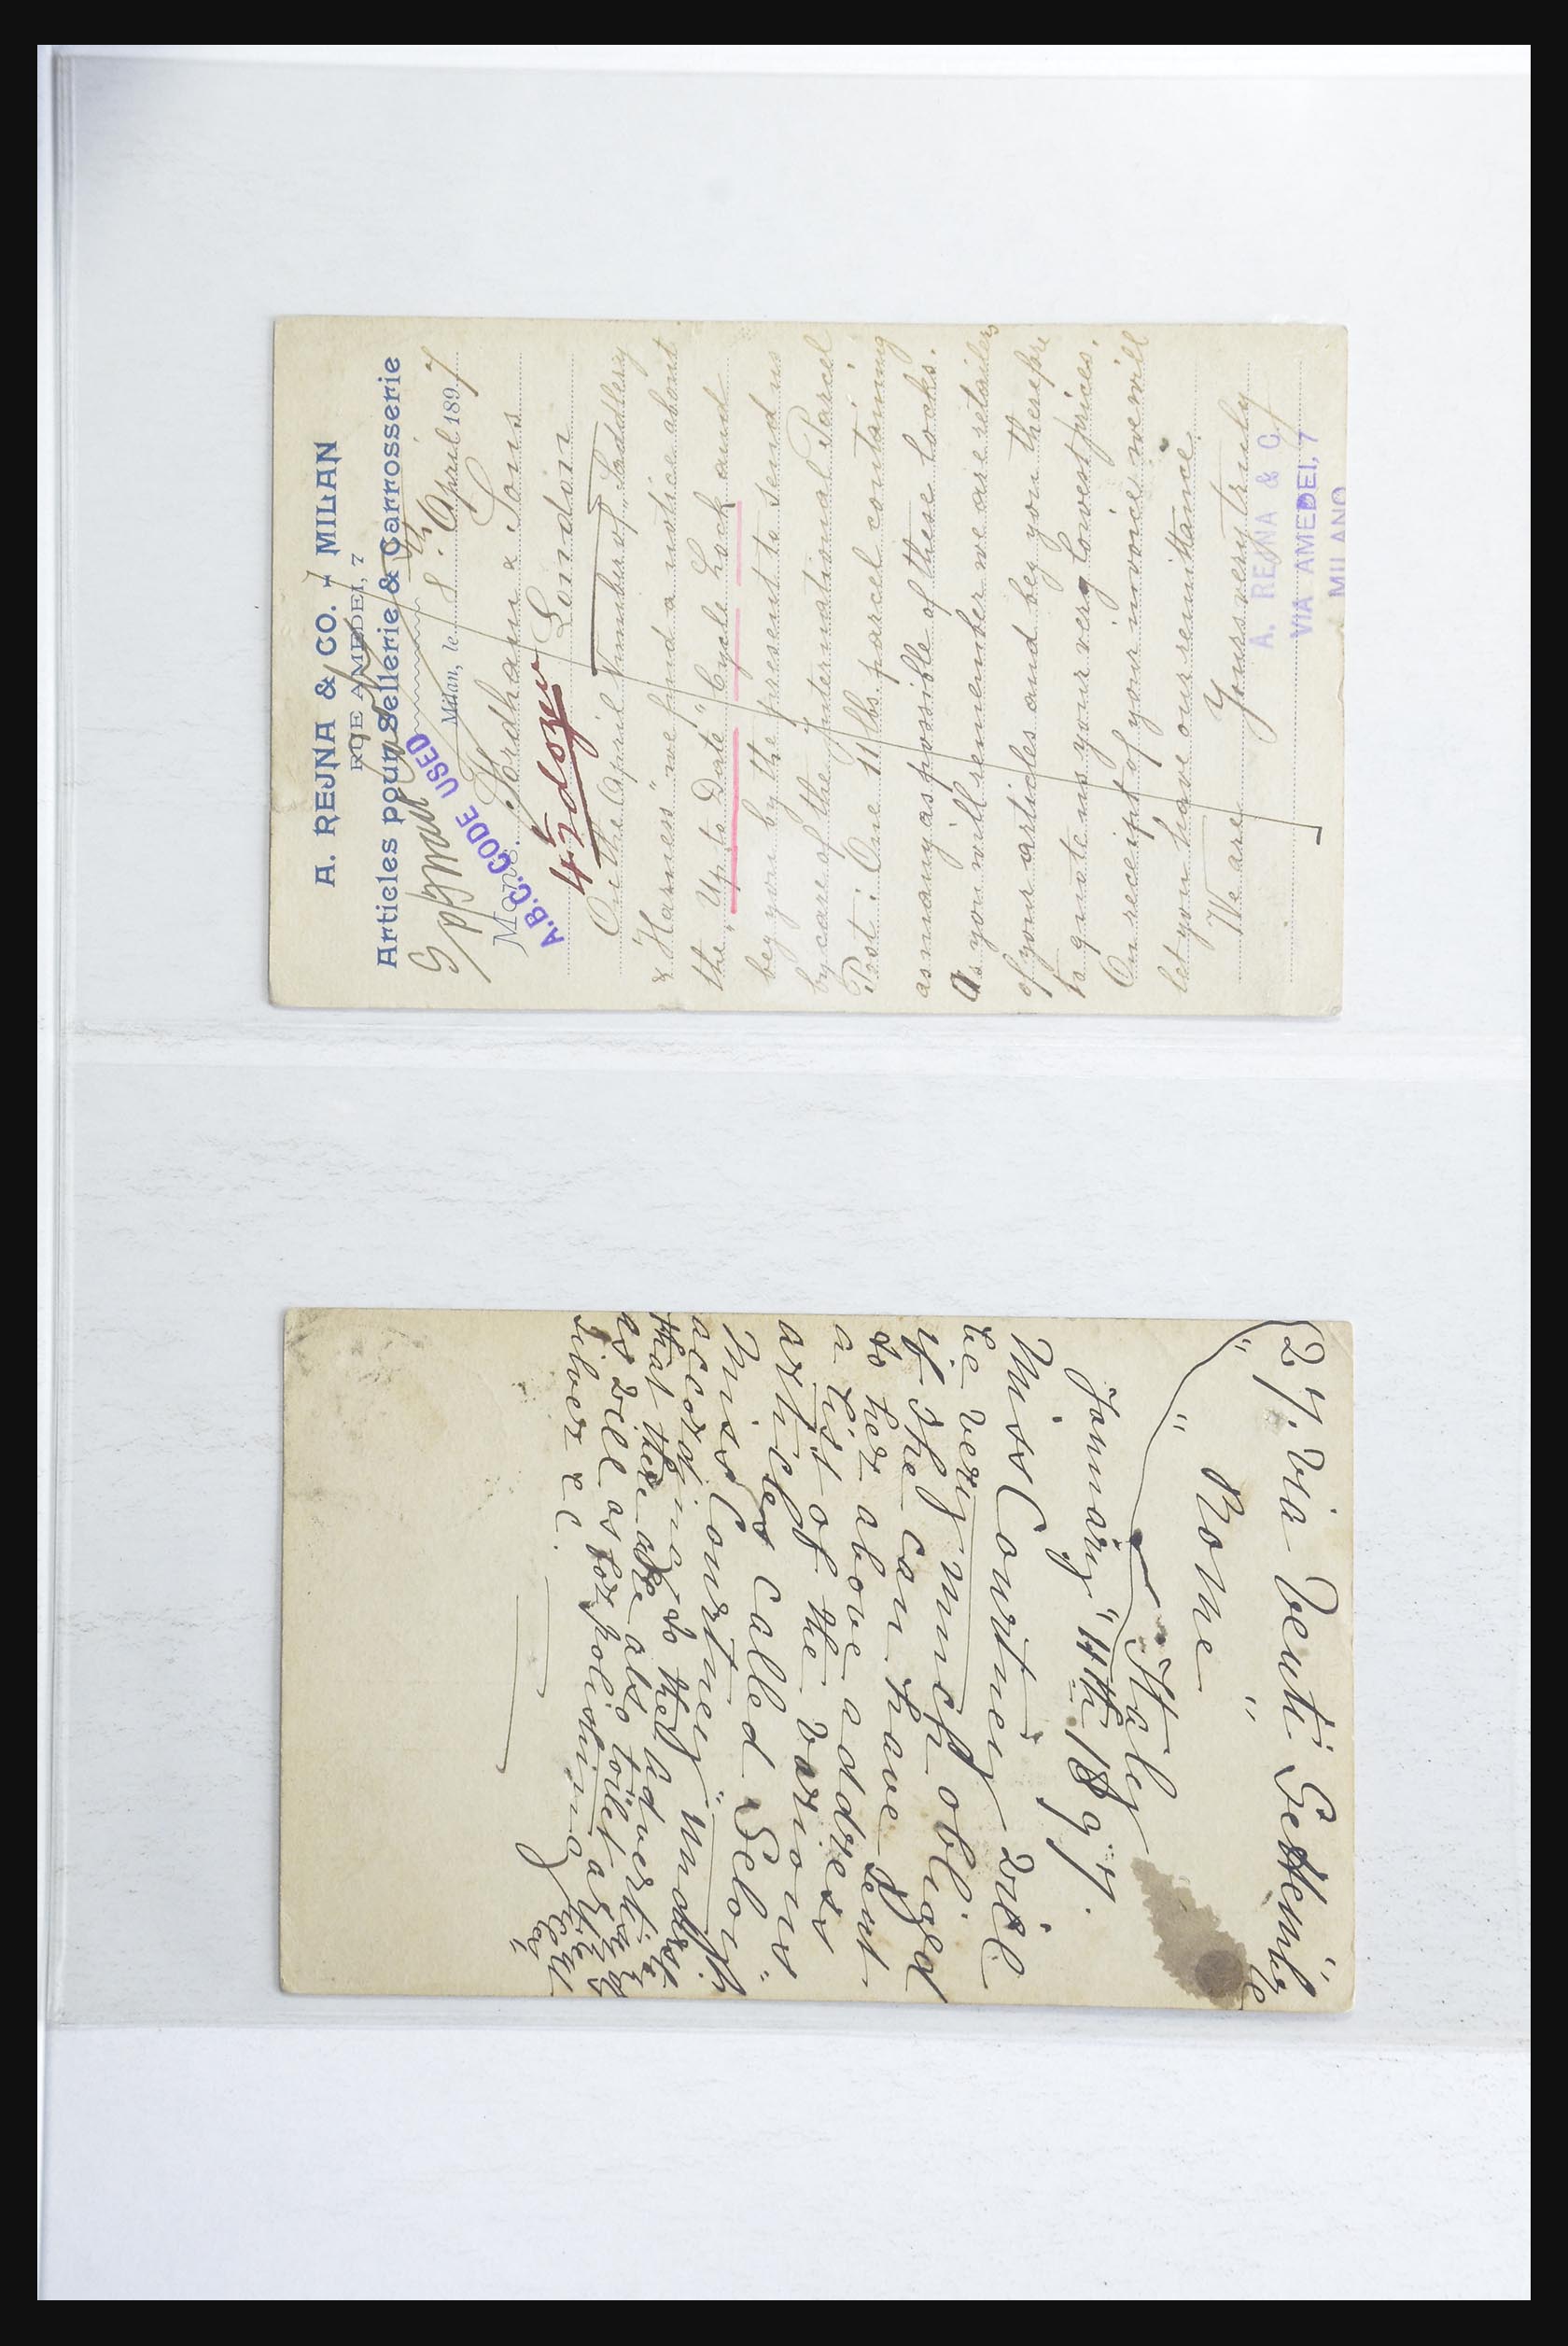 A. REJNA & CO. - MILAN
RUE AMEDEI, 7
Articles pour Sellerie & Carrosserie
Milan, le 8th April 1897
A.B.C. CODE USED
Mons. Fordham & Sons
London
4½ dozen
In the April number of "Saddlery
& Harness" we find a notice about
the "Up to Date" Cycle Lock and
beg you by the present to send us
by care of the International Parcel
Post: One 11 lbs. parcel containing
as many as possible of these locks.
As you will remember we are retailers
of your articles and beg you therefore
to quote us your very lowest prices.
On receipt of your invoice we will
let you have our remittance.
We are
Yours very truly
A. REJNA & C.
VIA AMEDEI, 7
MILANO
27. Via Venti Settembre
" Rome "
" Italy
January "4th 1897.
Miss Courtney will
be very much obliged
if she can have sent
to her above address
a list of the various
articles called Selop.
Miss Courtney "
according to the advertise
that there are also toilet articles
as well as for polishing
silver &c.